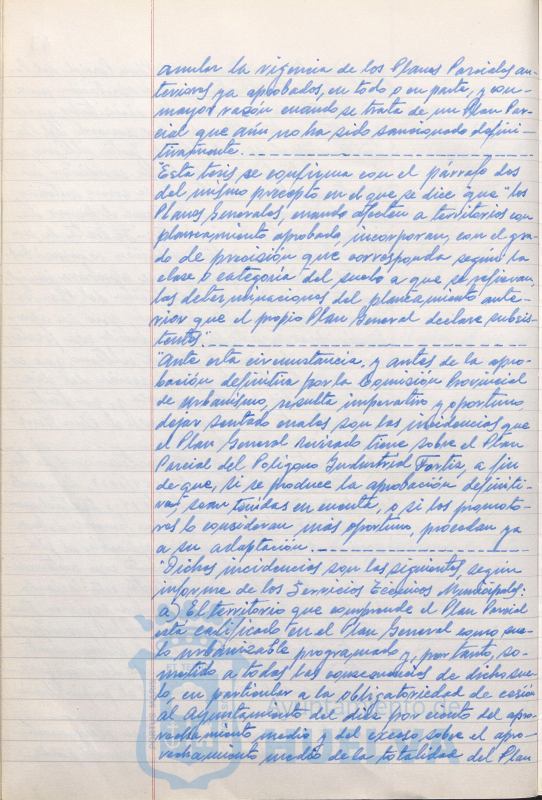 anular la vigencia de los Planes Parciales an-
teriores ya aprobados, en todo o en parte, y con
mayor razón cuando se trata de un Plan Par-
cial que aún no ha sido sancionado defini-
tivamente.
"Esta tesis se confirma con el párrafo dos
del mismo precepto en el que se dice "que "los
Planes Generales, cuando afecten a territorios con
planeamiento aprobado, incorporan, con el gra-
do de precisión que corresponda según la
clase o categoría del suelo a que se refieran,
las determinaciones del planeamiento ante-
rior que el propio Plan General declare subsis-
tentes".
"Ante esta circunstancia, y antes de la apro-
bación definitiva por la Comisión Provincial
de Urbanismo, resulta imperativo y oportuno,
dejar sentado cuales son las incidencias que
el Plan General revisado tiene sobre el Plan
Parcial del Polígono Industrial Fortia, a fin
de que, si se produce la aprobación definiti-
va, sean tenidas en cuenta, o si los promoto-
res lo consideran más oportuno, procedan ya
a su adaptación.
"Dichas incidencias son las siguientes, según
informe de los Servicios Técnicos Municipales:
a) El territorio que comprende el Plan Parcial
está calificado en el Plan General como sue-
lo urbanizable programado y, por tanto, so-
metido a todas las consecuencias de dicho sue-
lo, en particular a la obligatoriedad de cesión
al Ayuntamiento del diez por ciento del apro-
vechamiento medio y del exceso sobre el apro-
vechamiento medio de la totalidad del Plan
Ayuntamiento de